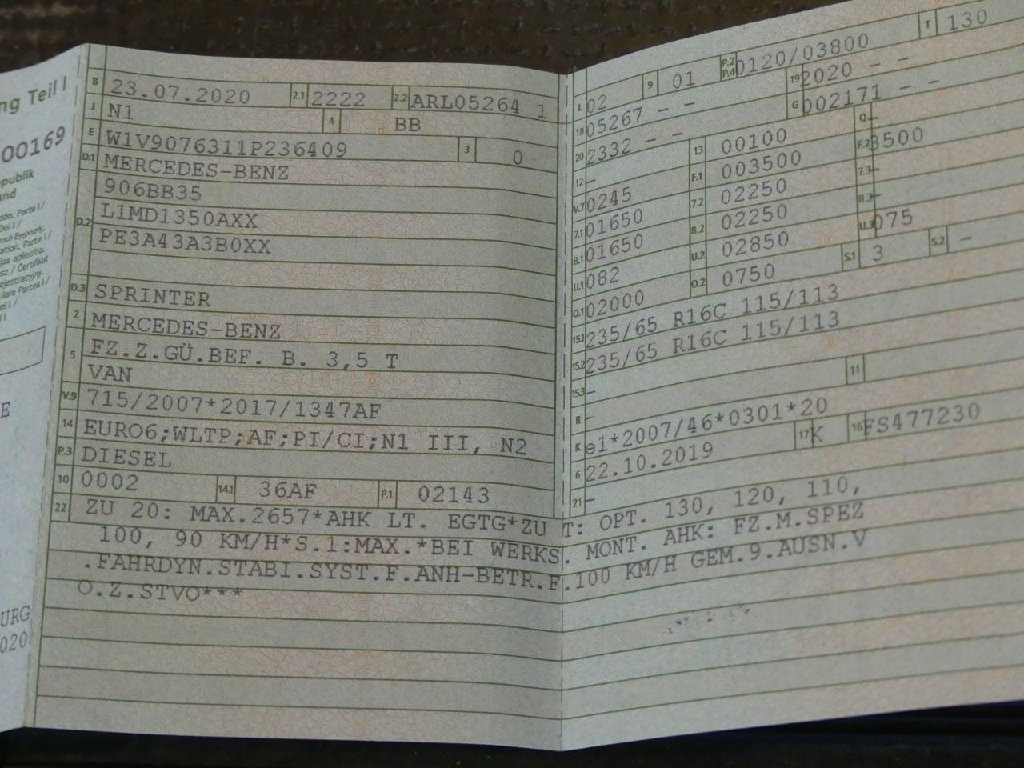 ng Teil I
00169
epublik
nd
B 23.07.2020 2.1 2222 2.2 ARL05264 1
J N1 4 BB
E W1V9076311P236409 3 0
D.1 MERCEDES-BENZ
906BB35
D.2 L1MD1350AXX
PE3A43A3B0XX
D.3 SPRINTER
2 MERCEDES-BENZ
5 FZ.Z.GÜ.BEF. B. 3,5 T
VAN
V.9 715/2007*2017/1347AF
14 EURO6;WLTP;AF;PI/CI;N1 III, N2
P.3 DIESEL
10 0002 14.1 36AF P.1 02143
L 02 9 01 P.2 P.4 0120/03800 T 130
18 05267 - - 19 2020 - -
20 2332 - - G 002171 - -
12 - 13 00100 Q -
V.7 0245 F.1 003500 F.2 3500
7.1 01650 7.2 02250 7.3 -
8.1 01650 8.2 02250 8.3 -
U.1 082 U.2 02850 U.3 075
O.1 02000 O.2 0750 S.1 3 S.2 -
15.1 235/65 R16C 115/113
15.2 235/65 R16C 115/113
15.3 -
R - 11
K e1*2007/46*0301*20
6 22.10.2019 17 K 16 FS477230
21 -
22 ZU 20: MAX.2657*AHK LT. EGTG*ZU T: OPT. 130, 120, 110,
100, 90 KM/H*S.1:MAX.*BEI WERKS. MONT. AHK: FZ.M.SPEZ
.FAHRDYN.STABI.SYST.F.ANH-BETR.F.100 KM/H GEM.9.AUSN.V
O.Z.STVO***
E
URG
020